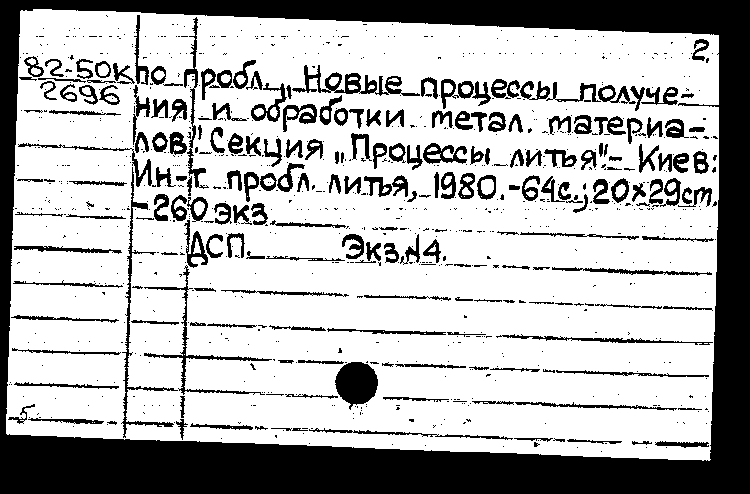 2.
82-50к по пробл. „Новые процессы получе-
2696 ния и обработки метал. материа-
лов". Секция „Процессы литья"- Киев:
Ин-т пробл. литья, 1980.-64с.; 20×29cm.
-260 экз.
ДСП. Экз.№4.
5